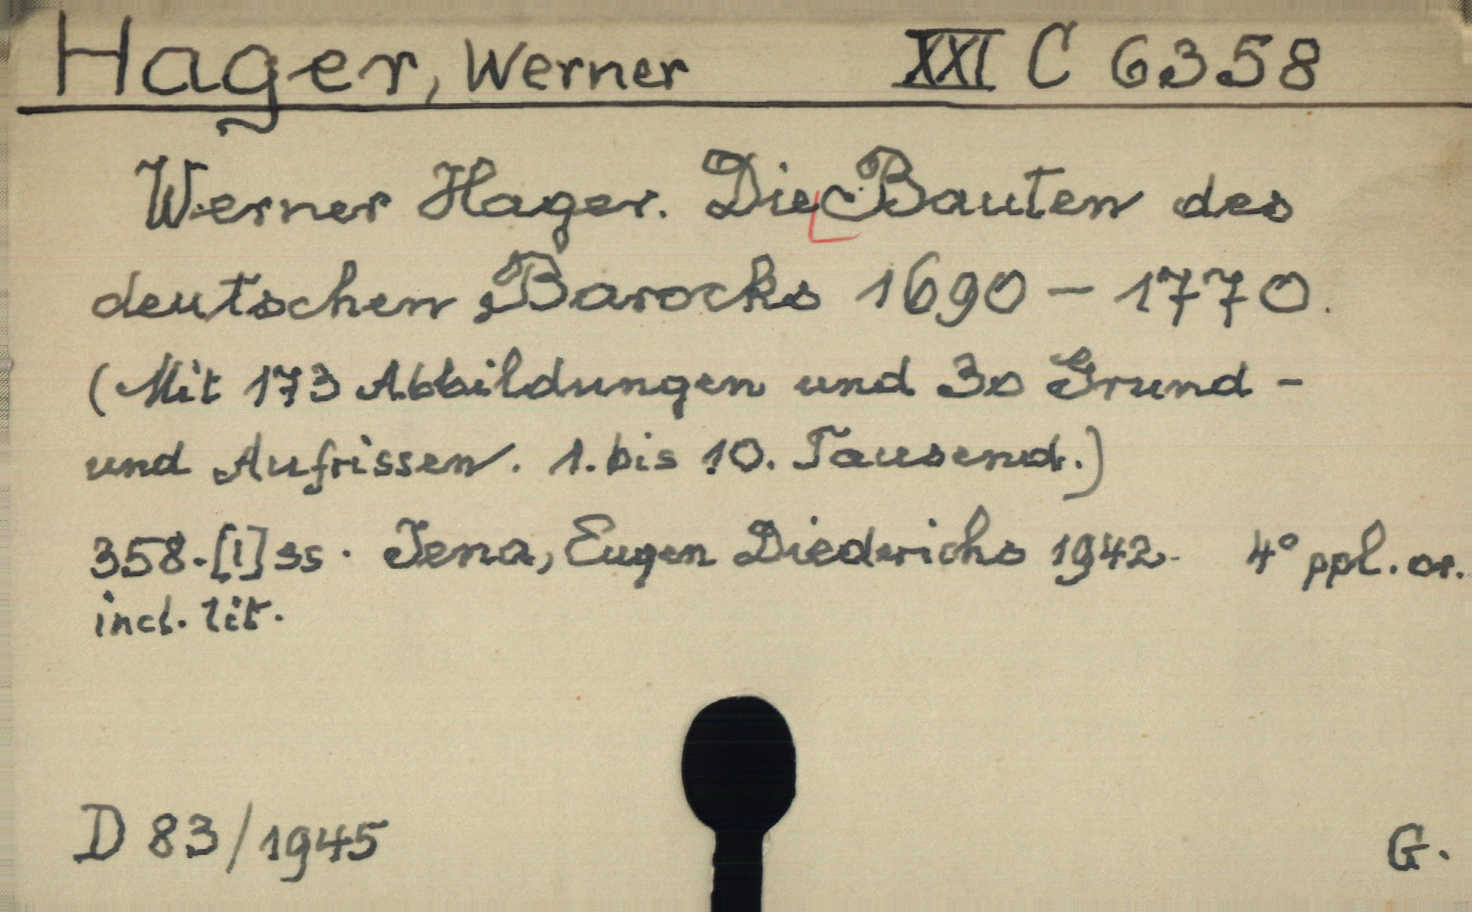 Hager, Werner XXI C 6358
Werner Hager. Die Bauten des
deutschen Barocks 1690 - 1770.
(Mit 173 Abbildungen und 30 Grund -
und Aufrissen. 1. bis 10. Tausend.)
358.[1] ss. Jena, Eugen Diederichs 1942. 4° ppl. or.
incl. lit.
D 83/1945 G.